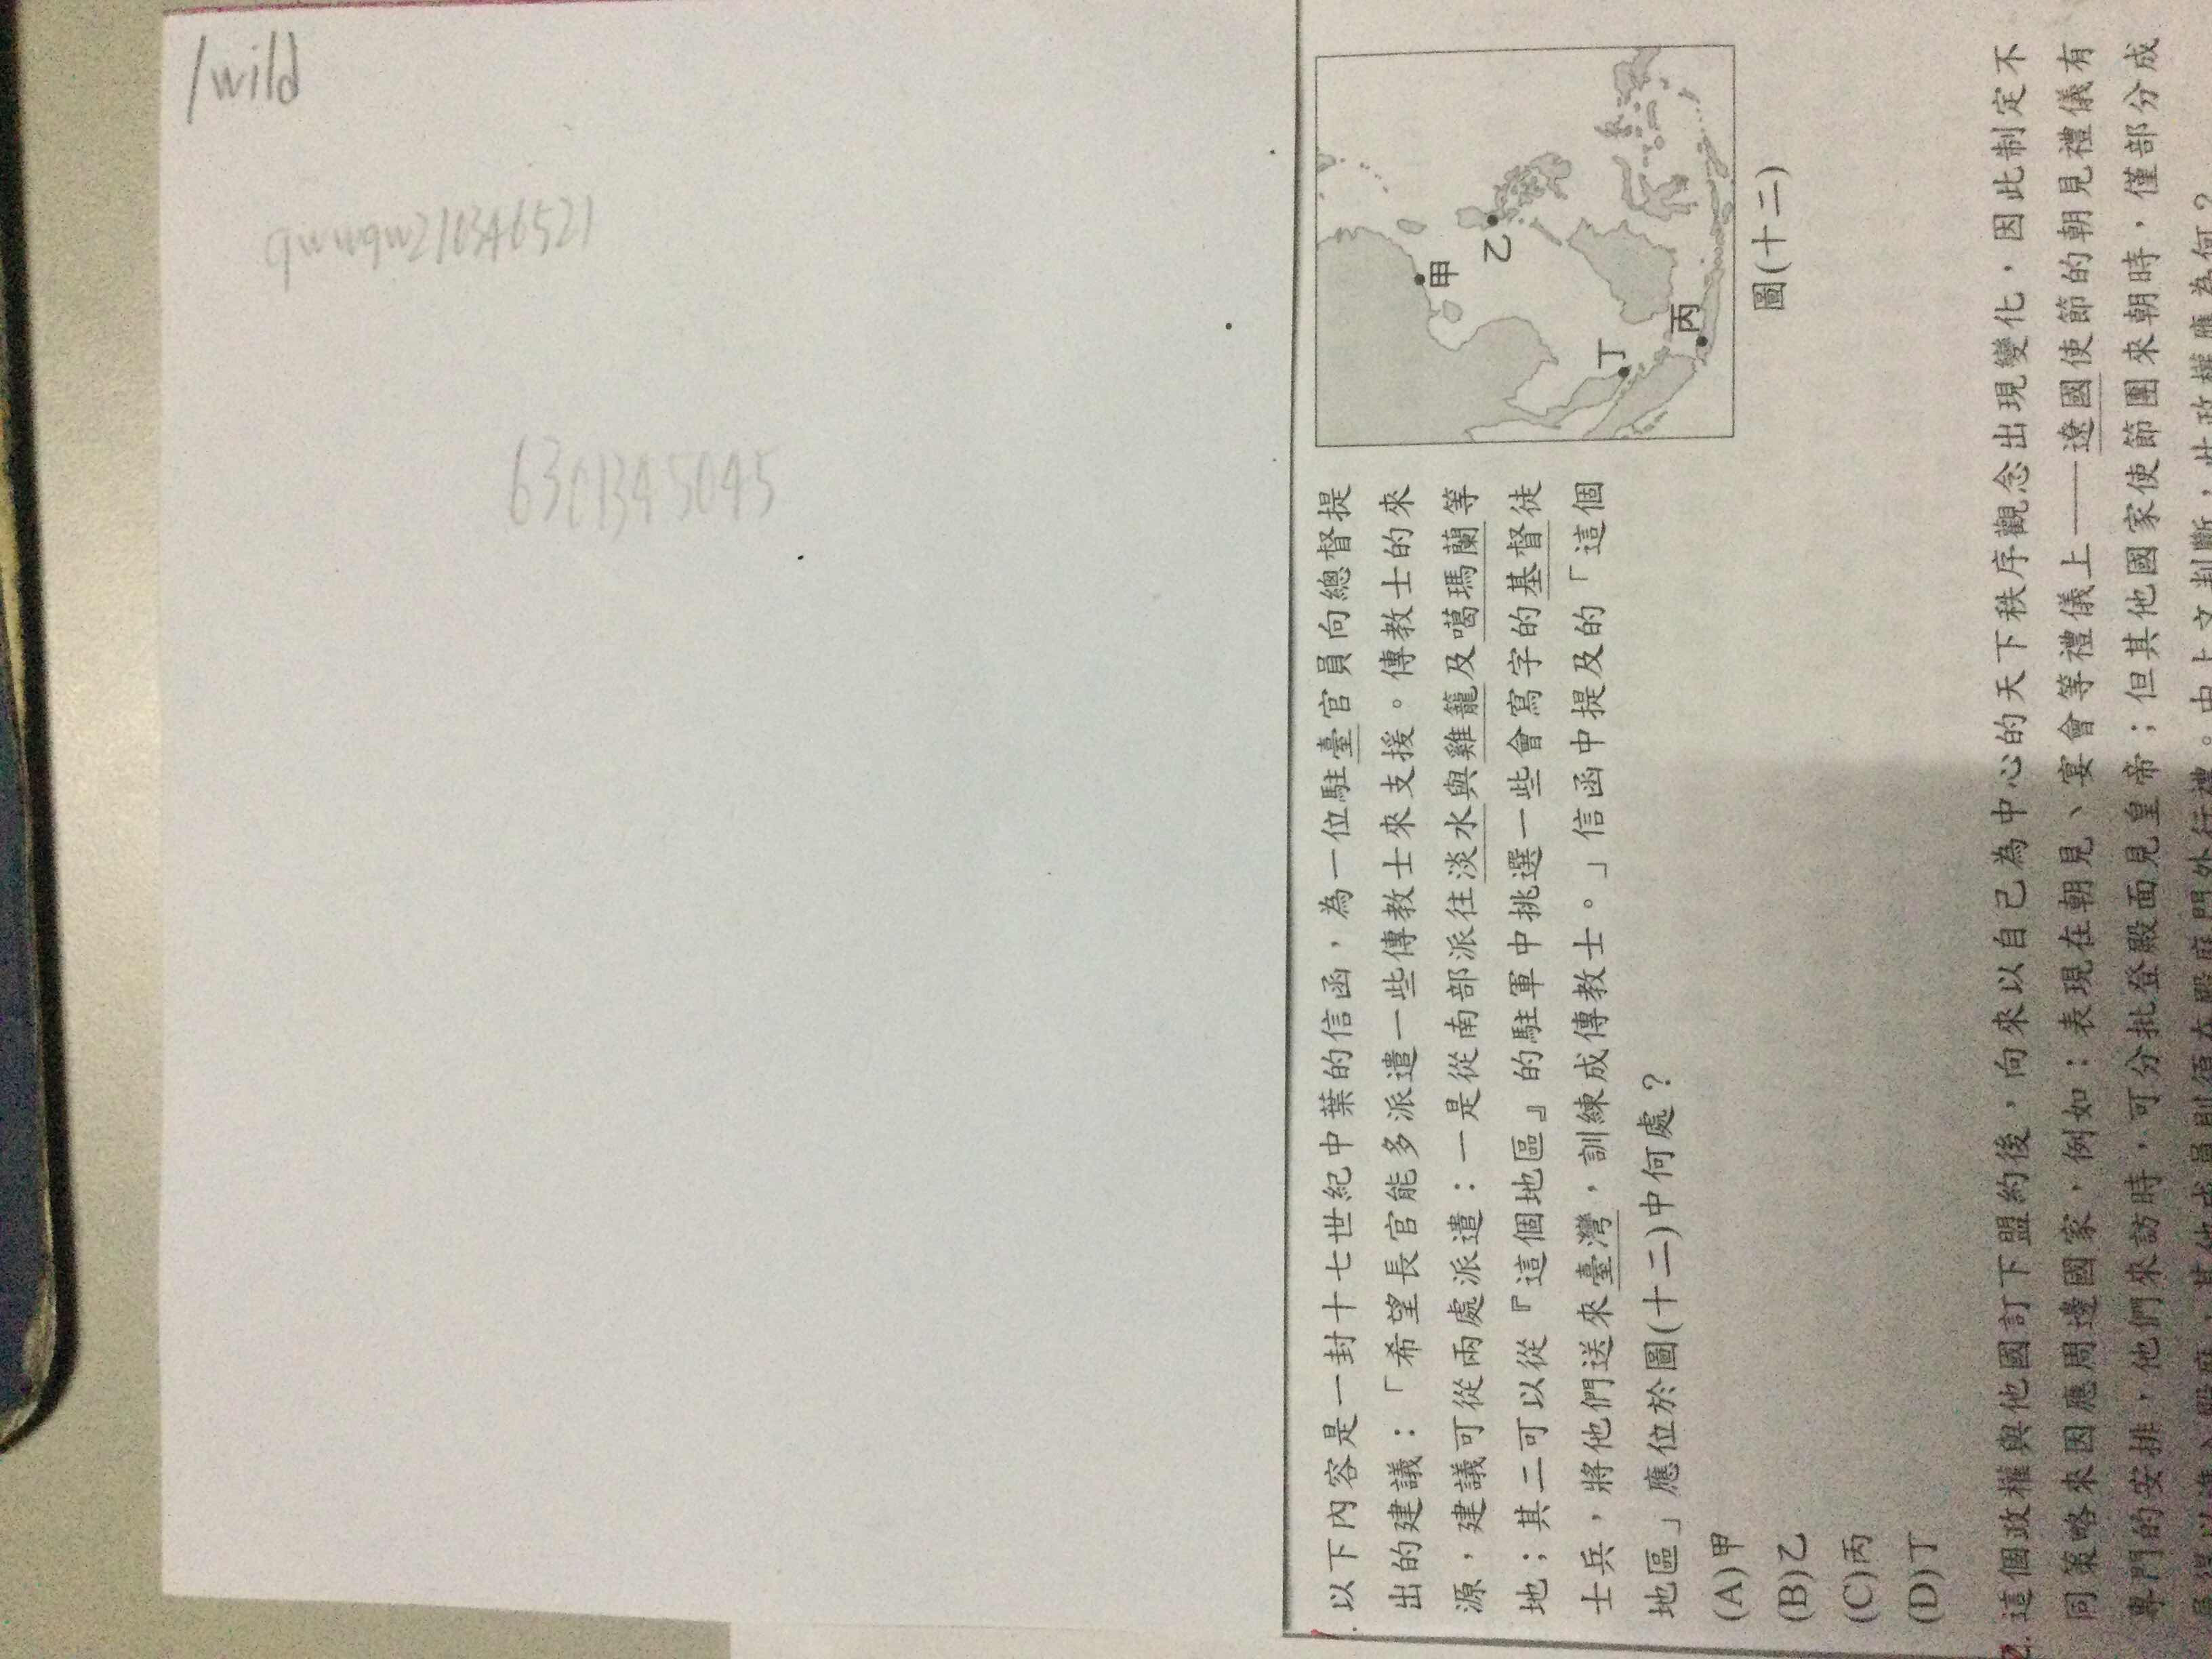 /wild
qwwqw210346521
以下內容是一封十七世紀中葉的信函,為一位駐臺官員向總督提
出的建議:「希望長官能多派遣一些傳教士來支援。傳教士的來
源,建議可從兩處派遣:一是從南部派往淡水與雞籠及噶瑪蘭等
地;其二可以從『這個地區』的駐軍中挑選一些會寫字的基督徒
士兵,將他們送來臺灣,訓練成傳教士。」信函中提及的「這個
地區」應位於圖(十二)中何處?
(A)甲
(B)乙
(C)丙
(D)丁
甲
乙
丙
丁
圖(十二)
這個政權與他國訂下盟約後,向來以自己為中心的天下秩序觀念出現變化,因此制定不
同策略來因應周邊國家,例如:表現在朝見、宴會等禮儀上——遼國使節的朝見禮儀有
專門的安排,他們來訪時,可分批登殿面見皇帝;但其他國家使節團來朝時,僅部分成